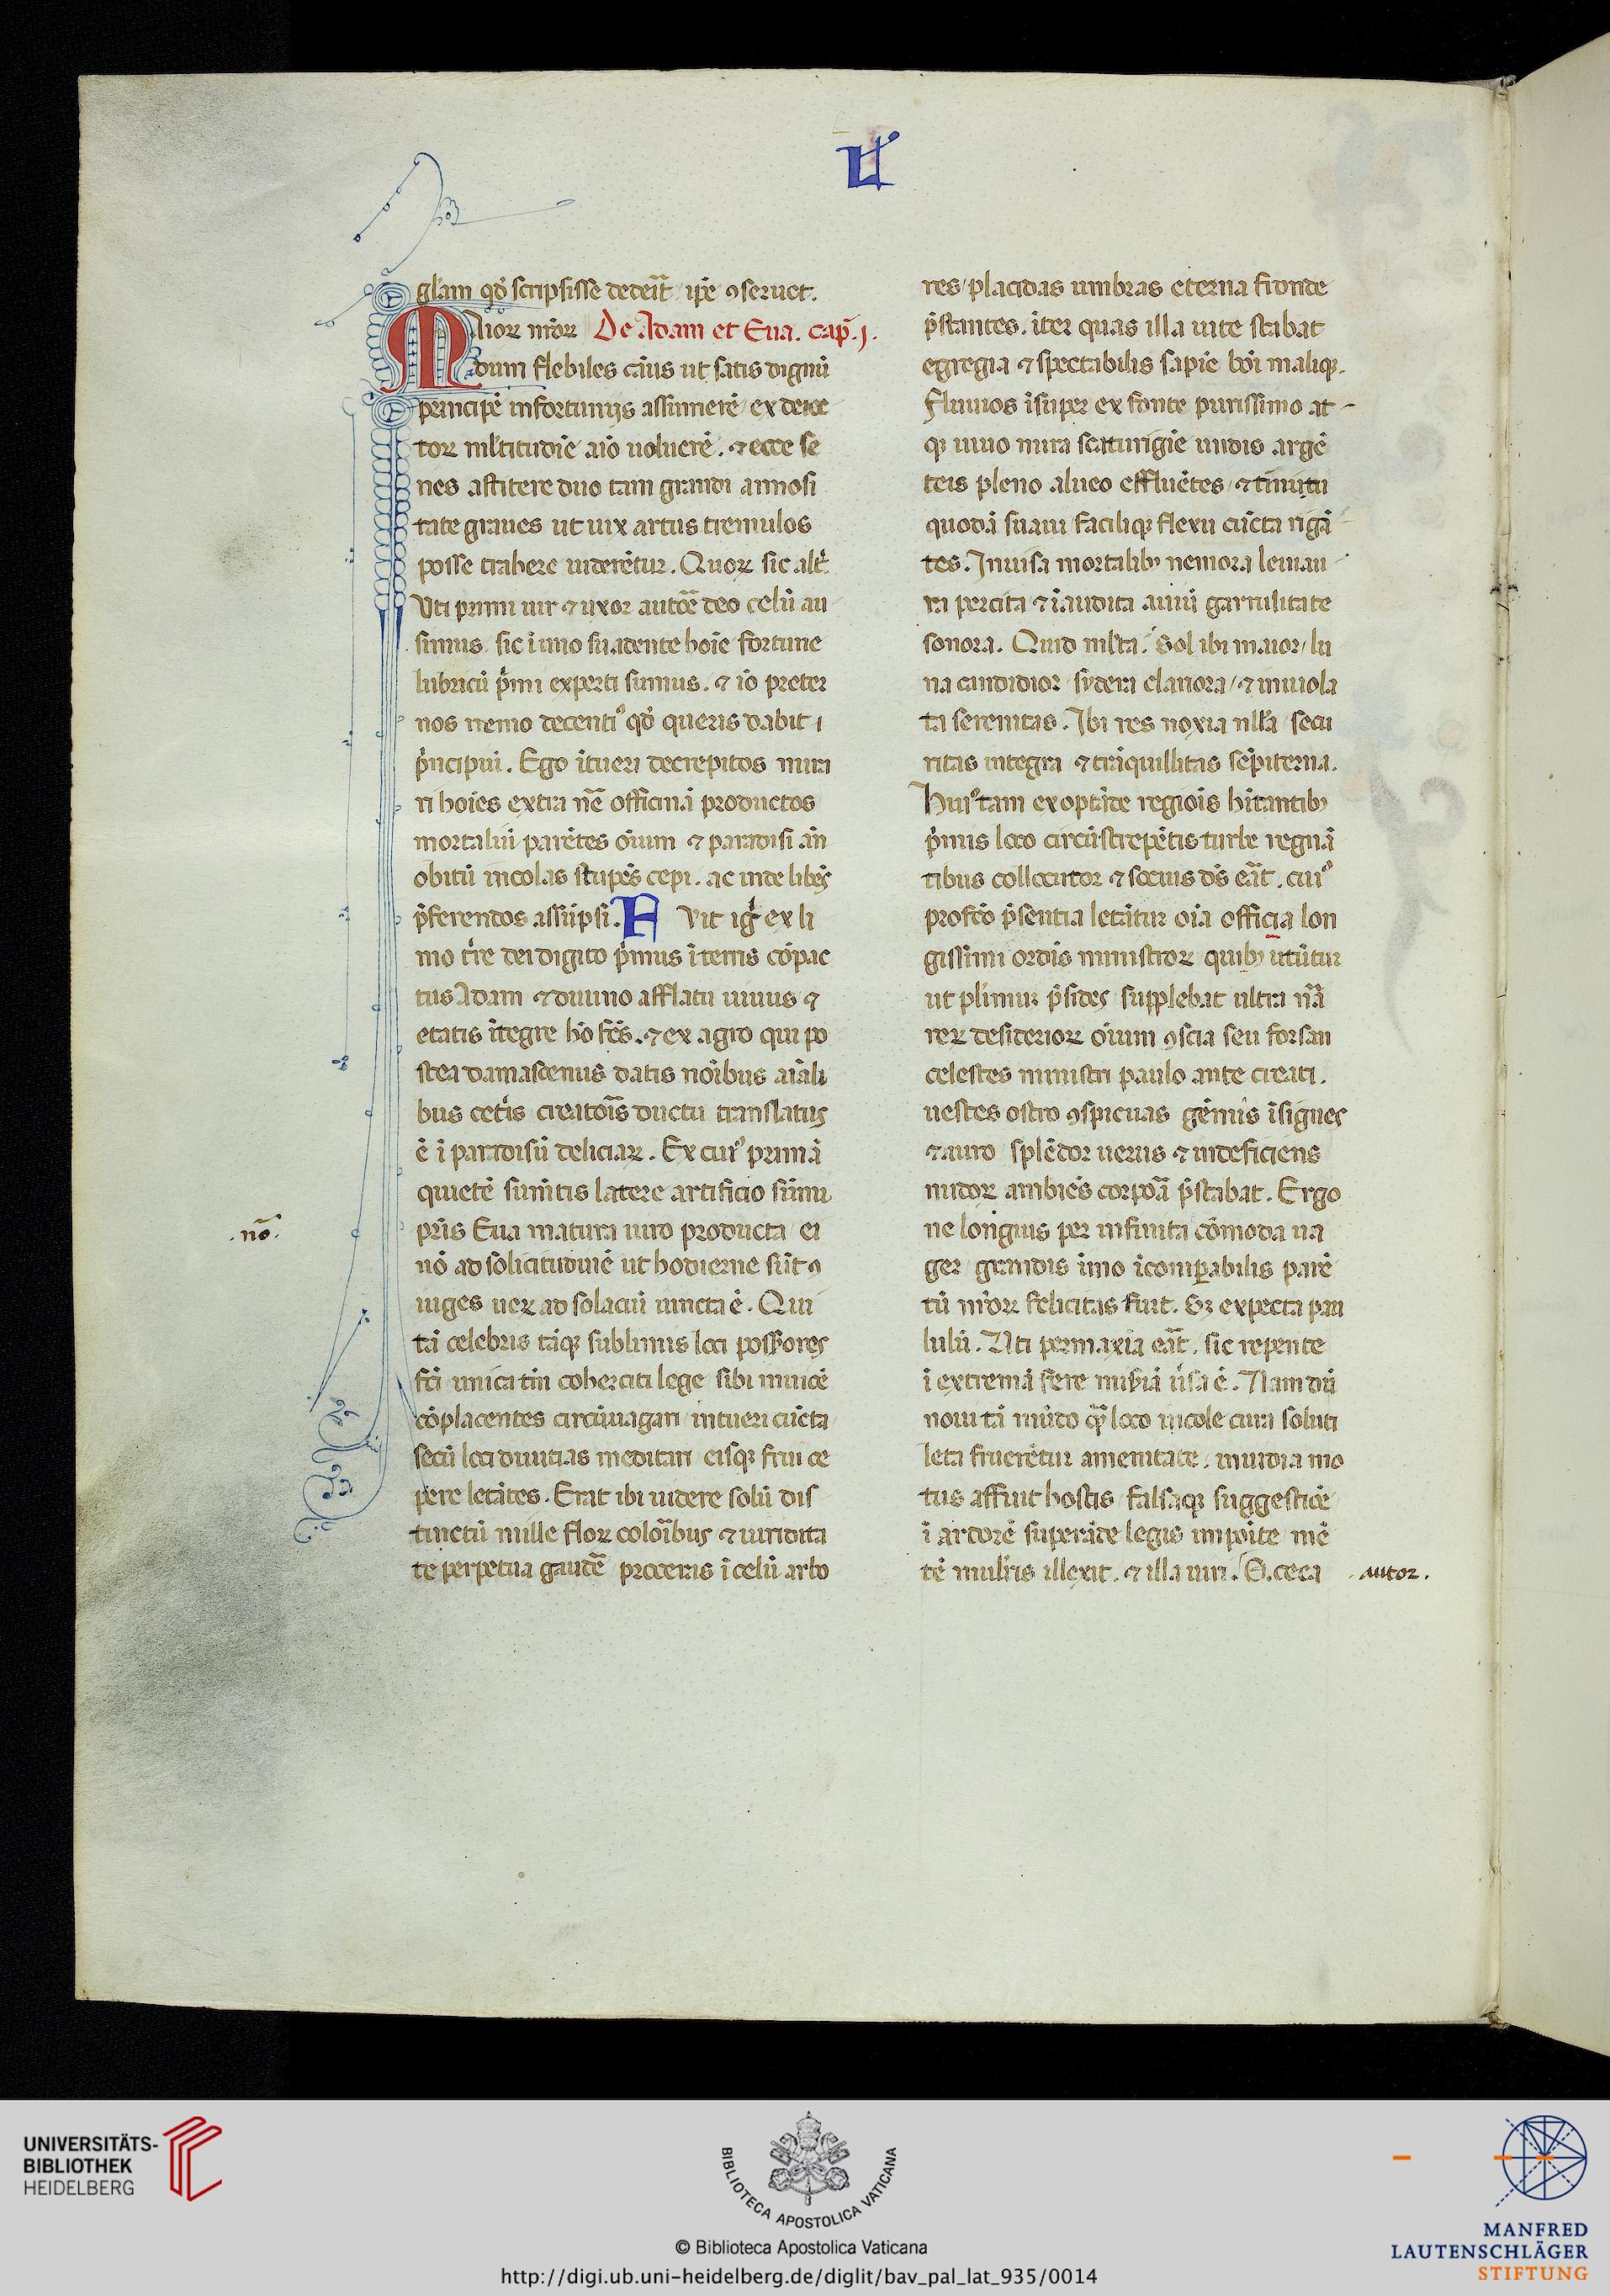 L
glam qđ scripsisse dedeĩt ipẽ ꝯseruet.
Maioꝝ nr̃oꝝ De Adam et Eua. cap̃. j.
dum flebiles cãus ut satis dignũ
principẽ infortunijs assumerẽ ex deiec
toꝝ ml̃titudĩe aĩo uoluerẽ. ⁊ ecce se
nes astitere duo tam grandi annosi
tate graues ut uix artus tremulos
posse trahere uiderẽtur. Quoꝝ sic alt̃
Uti primi uir ⁊ uxor autõe deo celũ au
simus sic ĩimo suadente hoĩe fortune
lubricũ p̃mi experti sumus. ⁊ iõ preter
nos nemo decentiꝰ qđ queris dabit i
p̃ncipiũ. Ego ĩtueri decrepitos mira
ri hoĩes extra nr̃ẽ officinã productos
mortaliũ parẽtes oĩum ⁊ paradisi añ
obitũ incolas stupẽs cepi. ac inde libẽs
p̃ferendos assũpsi. Fuit ig̃ ex li
mo t̃re dei digito p̃mus ĩ terris cõpac
tus Adam ⁊ diuino afflatu uiuus ⁊
etatis ĩtegre hõ fcũs. ⁊ ex agro qui po
stea damascenus datis noĩbus aĩali
bus cet̃is creatoĩs ductu translatus
ẽ ĩ paradisũ deliciaꝝ. Ex cuiꝰ primã
quietẽ sumẽtis latere artificio sũmi
pr̃is Eua matura uiro producta ei
nõ ad solicitudinẽ ut hodierne sũt ꝯ
iuges ueꝝ ad solaciũ iuncta ẽ. Qui
.nõ.
tã celebris tãqꝫ sublimis loci poss̃ores
fcĩ unica tm̃ coherciti lege sibi inuicẽ
cõplacentes circũuagari intueri cũcta
secũ loci diuitias meditari eisqꝫ frui ce
pere letãtes. Erat ibi uidere solũ dis
tinctũ mille floꝝ coloĩbus ⁊ uiridita
te perpetua gaudẽ proceris ĩ celũ arbo
res placidas umbras eterna fronde
p̃stantes. ĩter quas illa uite stabat
egregia ⁊ spectabilis sapĩe bõi maliqꝫ.
Fluuios ĩsuper ex fonte purissimo at
qꝫ uiuo mira scaturigĩe undis argẽ
teis pleno alueo effluẽtes ⁊ tinnitu
quodã suaui faciliqꝫ flexu cũcta rigã
tes. Inuisa mortalibꝫ nemora leui au
ra percita ⁊ ĩaudita auiũ garrulitate
sonora. Quid ml̃ta. Sol ibi maior lu
na candidior sydera clariora ⁊ inuiola
ta serenitas. Ibi res noxia nll̃a secu
ritas integra ⁊ trãquillitas sẽpiterna.
Huiꝰ tam exoptãde regiõis hĩtantibꝫ
p̃mus loco circũstrepẽtis turbe regnã
tibus collocutor ⁊ socius dñs eãt. cuiꝰ
profcõ p̃sentia letãtur oĩa officia lon
gissimi ordĩs ministroꝝ quibꝫ utũtur
ut plimũ p̃sides supplebat ultra nr̃ã
reꝝ desideriorꝝ oĩum ꝯscia seu forsan
celestes ministri paulo ante creati.
uestes ostro ꝯspicuas gẽmis ĩsignes
⁊ auro splẽdor uerus ⁊ indeficiens
nudoꝝ ambiẽs corpoã p̃stabat. Ergo
ne longius per infinita cõmoda ua
ger grandis imo ĩcomparabilis parẽ
tũ nr̃oꝝ felicitas fuit. Sꝫ expecta pau
lulũ. Uti permaxia eãt. sic repente
ĩ extremã fere miseriã ũsa ẽ. Nam dũ
noui tã mũdo qꝫ loco incole cura soluti
leta fruerẽtur amenitate. inuidia mo
tus affuit hostis falsaqꝫ suggestiõe
ĩ ardorẽ superãde legis imposite mẽ
tẽ mulĩris illexit. ⁊ illa uiri. O. ceca
. autor.
UNIVERSITÄTS-
BIBLIOTHEK
HEIDELBERG
BIBLIOTECA APOSTOLICA VATICANA
© Biblioteca Apostolica Vaticana
http://digi.ub.uni-heidelberg.de/diglit/bav_pal_lat_935/0014
MANFRED
LAUTENSCHLÄGER
STIFTUNG